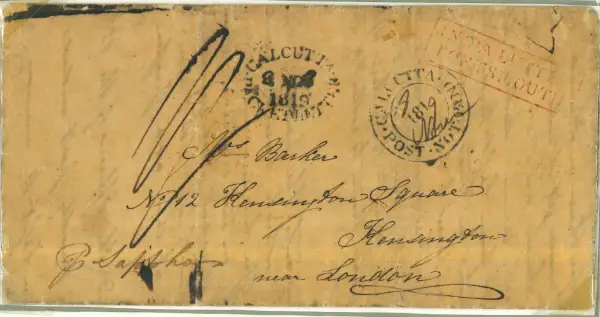 CALCUTTA
1819
PACKET LETTER
CALCUTTA
1819
Nov
POST NOT
INDIA LETTER
PORTSMOUTH
Mrs Barker
No 12 Kensington Square
Kensington
near London
p Sappho